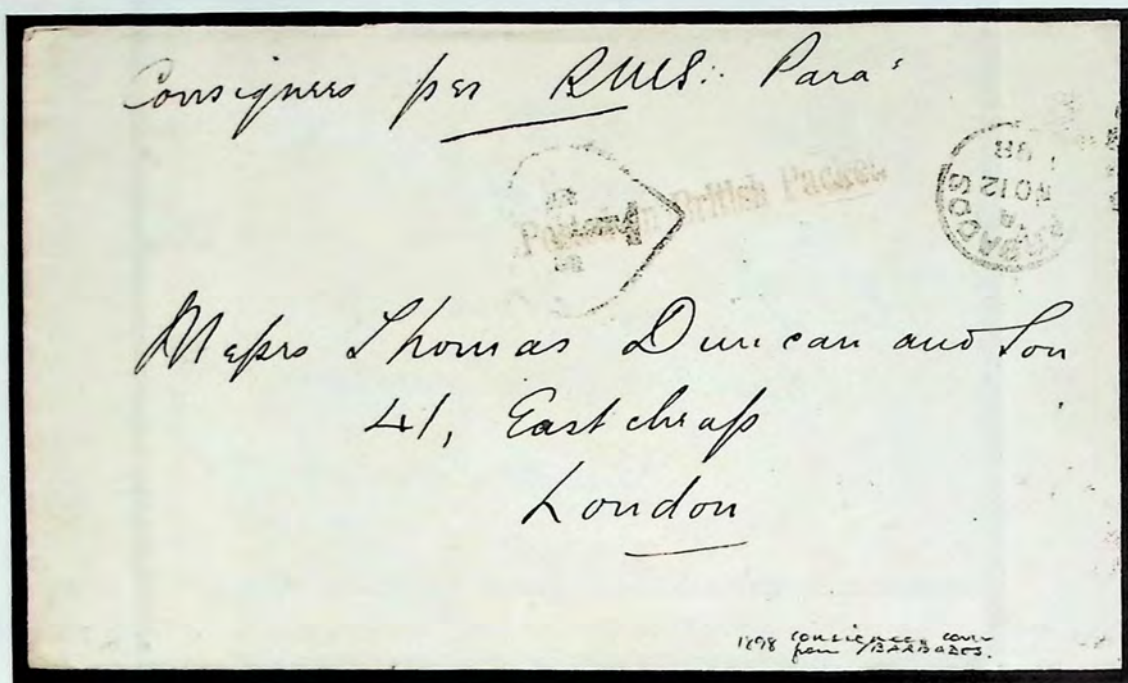 Consignees per RMS: Para
Posted in British Packet
BARBADOS
A
NO 12
98
Messrs Thomas Duncan and Son
41, Eastcheap
London
1898 consignee cover
from BARBADOS.